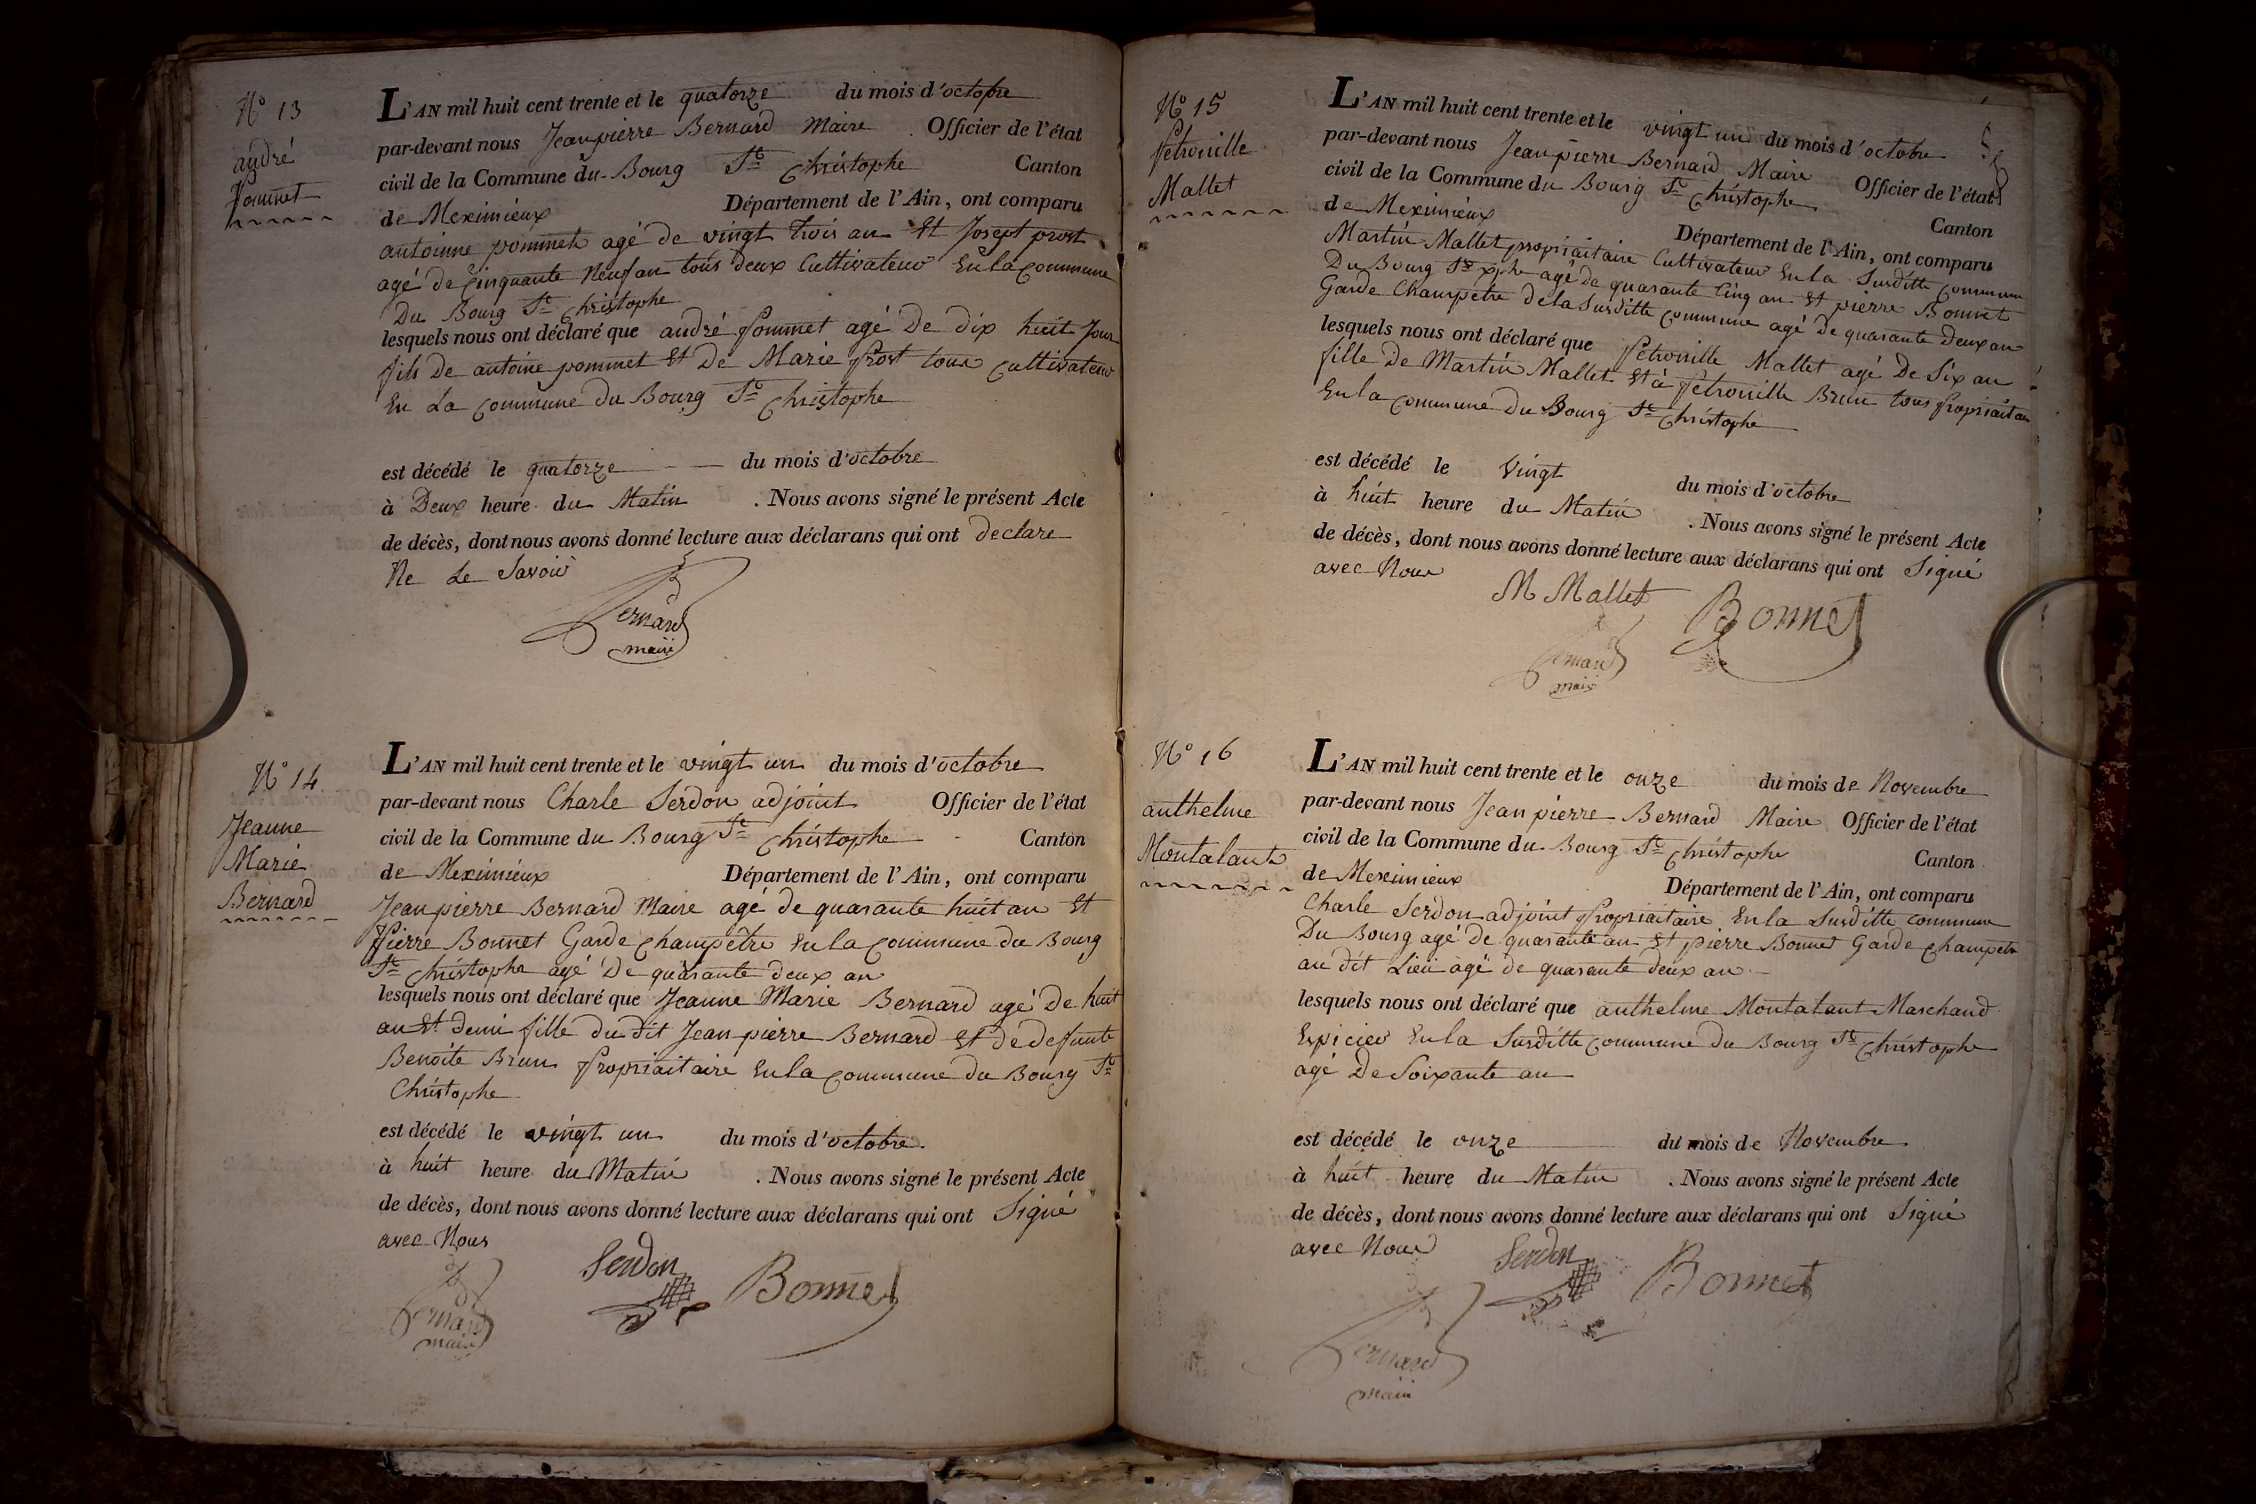 N° 13
andré
Pommet
L'AN mil huit cent trente et le quatorze du mois d'octobre
par-devant nous Jeanpierre Bernard Maire . Officier de l'état
civil de la Commune du Bourg St Christophe Canton
de Meximieux Département de l'Ain, ont comparu
antoinne pommet agé de vingt trois an Et Josept prost
agé de Cinquante Neuf an tous deux Cultivateur En la Commune
Du Bourg St Christophe
lesquels nous ont déclaré que andré Pommet agé De dix huit Jour
fils De antoine pommet Et De Marie Prost tous Cultivateur
En La Commune du Bourg St Christophe
est décédé le quatorze du mois d'octobre
à Deux heure du Matin . Nous avons signé le présent Acte
de décès, dont nous avons donné lecture aux déclarans qui ont declare
Ne Le Savoir
Bernard
maire
N° 14
Jeanne
Marie
Bernard
L'AN mil huit cent trente et le vingt un du mois d'octobre
par-devant nous Charle Serdon adjoint Officier de l'état
civil de la Commune du Bourg St Christophe Canton
de Meximieux Département de l'Ain, ont comparu
Jeanpierre Bernard Maire agé de quarante huit an Et
Pierre Bonnet Garde Champêtre En la Commune du Bourg
St Christophe agé De quarante deux an
lesquels nous ont déclaré que Jeanne Marie Bernard agé De huit
an Et demi fille du dit Jeanpierre Bernard Et de defunte
Benoite Brun Propriaitaire En la Commune du Bourg St
Christophe
est décédé le vingt un du mois d'octobre.
à huit heure du Matin . Nous avons signé le présent Acte
de décès, dont nous avons donné lecture aux déclarans qui ont Signé
avec Nous
Serdon
Bonnet
Bernard
maire
N° 15
Petronille
Mallet
L'AN mil huit cent trente et le vingt un du mois d'octobre
par-devant nous Jeanpierre Bernard Maire Officier de l'état
civil de la Commune du Bourg St Christophe Canton
de Meximieux Département de l'Ain, ont comparu
Martin Mallet propriaitaire Cultivateur En la Surditte Commune
Du Bourg St xphe agé de quarante Cinq an Et pierre Bonnet
Garde Champêtre de la Surditte Commune agé de quarante deux an
lesquels nous ont déclaré que Petronille Mallet agé De Six an
fille de Martin Mallet Et à Petronille Brun tous Propriaitaire
En la Commune Du Bourg St Christophe
est décédé le Vingt du mois d'octobre
à huit heure du Matin . Nous avons signé le présent Acte
de décès, dont nous avons donné lecture aux déclarans qui ont Signé
avec Nous
M Mallet
Bonnet
Bernard
maire
N° 16
anthelme
Montalant
L'AN mil huit cent trente et le onze du mois de Novembre
par-devant nous Jeanpierre Bernard Maire Officier de l'état
civil de la Commune du Bourg St Christophe Canton
de Meximieux Département de l'Ain, ont comparu
Charle Serdon adjoint Propriaitaire En la Surditte Commune
Du Bourg agé de quarante an Et pierre Bonnet Garde Champetre
au dit Lieu agé de quarante deux an
lesquels nous ont déclaré que anthelme Montalant Marchand
Espicier En la Surditte Commune du Bourg St Christophe
agé De Soixante an
est décédé le onze du mois de Novembre
à huit heure du Matin . Nous avons signé le présent Acte
de décès, dont nous avons donné lecture aux déclarans qui ont Signé
avec Nous
Serdon
Bonnet
Bernard
maire